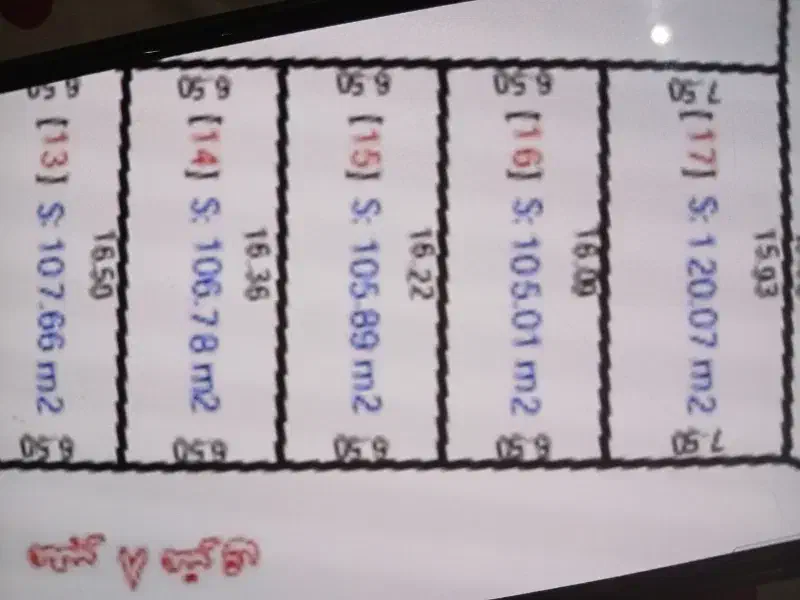 6.50
[13] S: 107.66 m2
16.50
6.50
6.50
[14] S: 106.78 m2
16.36
6.50
6.50
[15] S: 105.89 m2
16.22
6.50
6.50
[16] S: 105.01 m2
16.09
6.50
7.50
[17] S: 120.07 m2
15.93
7.50